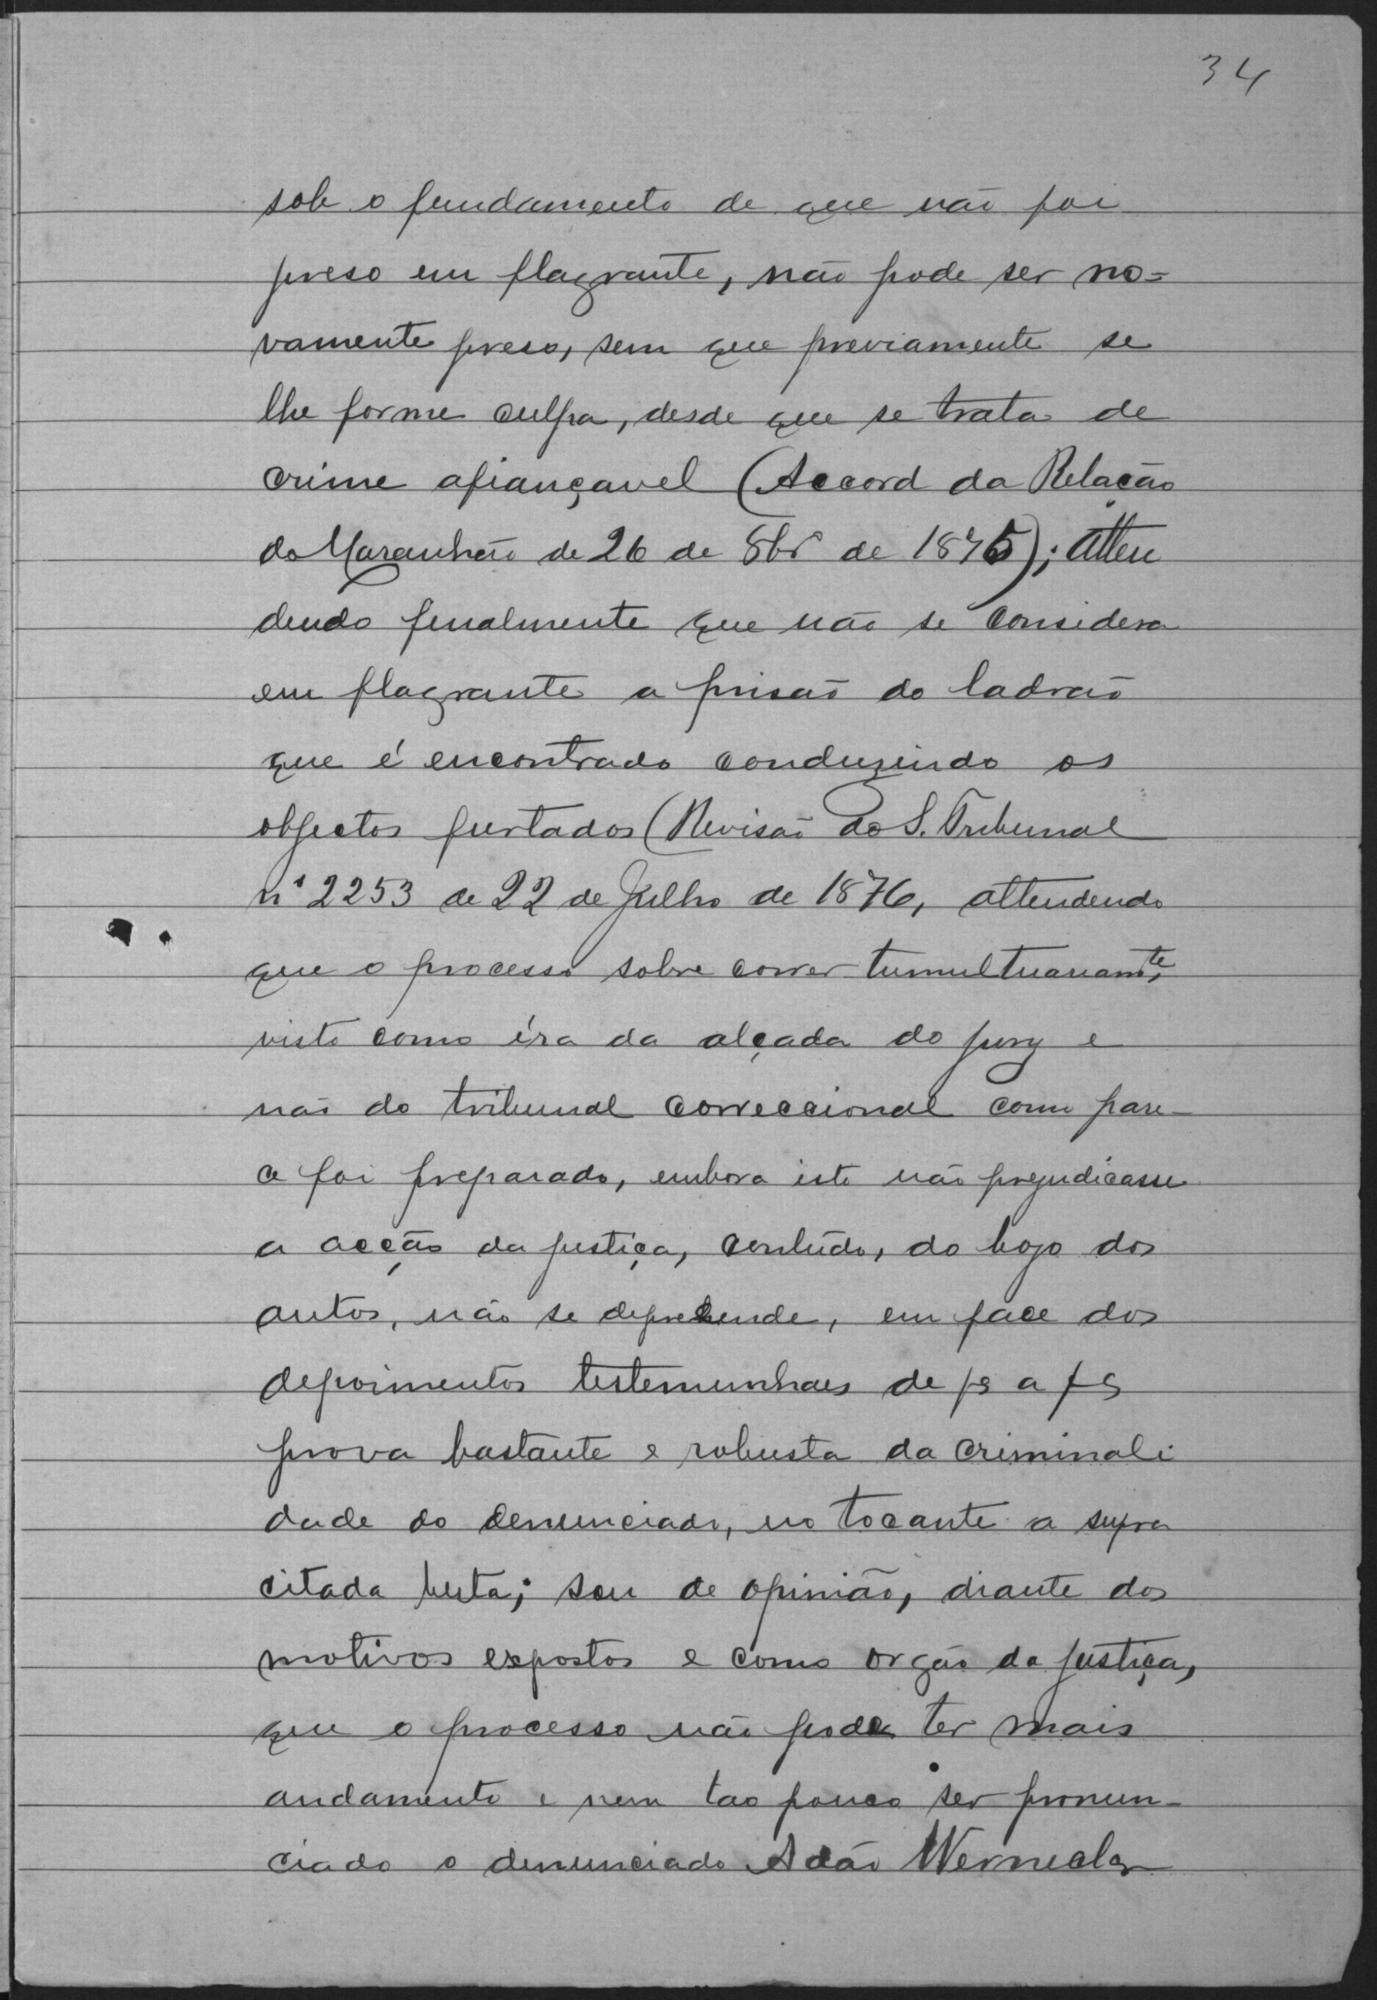 34
sob o fundamento de que não foi
preso em flagrante, não pode ser no=
vamente preso, sem que previamente se
lhe forme culpa, desde que se trata de
crime afiançavel (Accord da Relação
do Maranhão de 26 de 8br de 1875); Atten
dendo finalmente que não se considera
em flagrante a prisão do ladrão
que é encontrado conduzindo os
objectos furtados (Revisão do S. Tribunal
nº 2253 de 22 de Julho de 1876, attendendo
que o processo sobre correr tumultuariamte,
visto como éra da alçada do jury e
não do tribunal correccional como pare-
ce foi preparado, embora isto não prejudicasse
a acção da justiça, contúdo, do bojo dos
autos, não se deprehende, em face dos
depoimentos testemunhaes de fs a fs
prova bastante e robusta da criminali
dade do denunciado, no tocante a supra
citada besta; sou de opinião, diante dos
motivos expostos e como orgão da justiça,
que o processo não pode ter mais
andamento e nem tao pouco ser pronun-
ciado o denunciado Adão Werneck